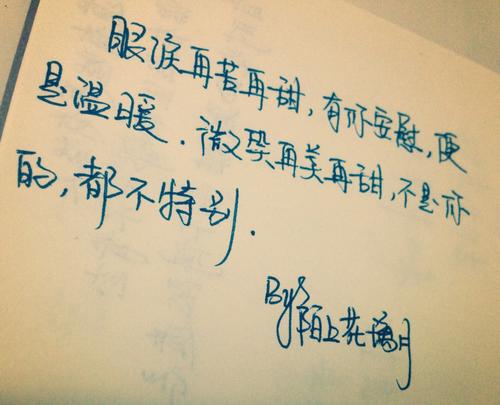 眼泪再苦再甜,有你安慰,便
是温暖.微笑再美再甜,不是你
的,都不特别.
By 陌上花 月